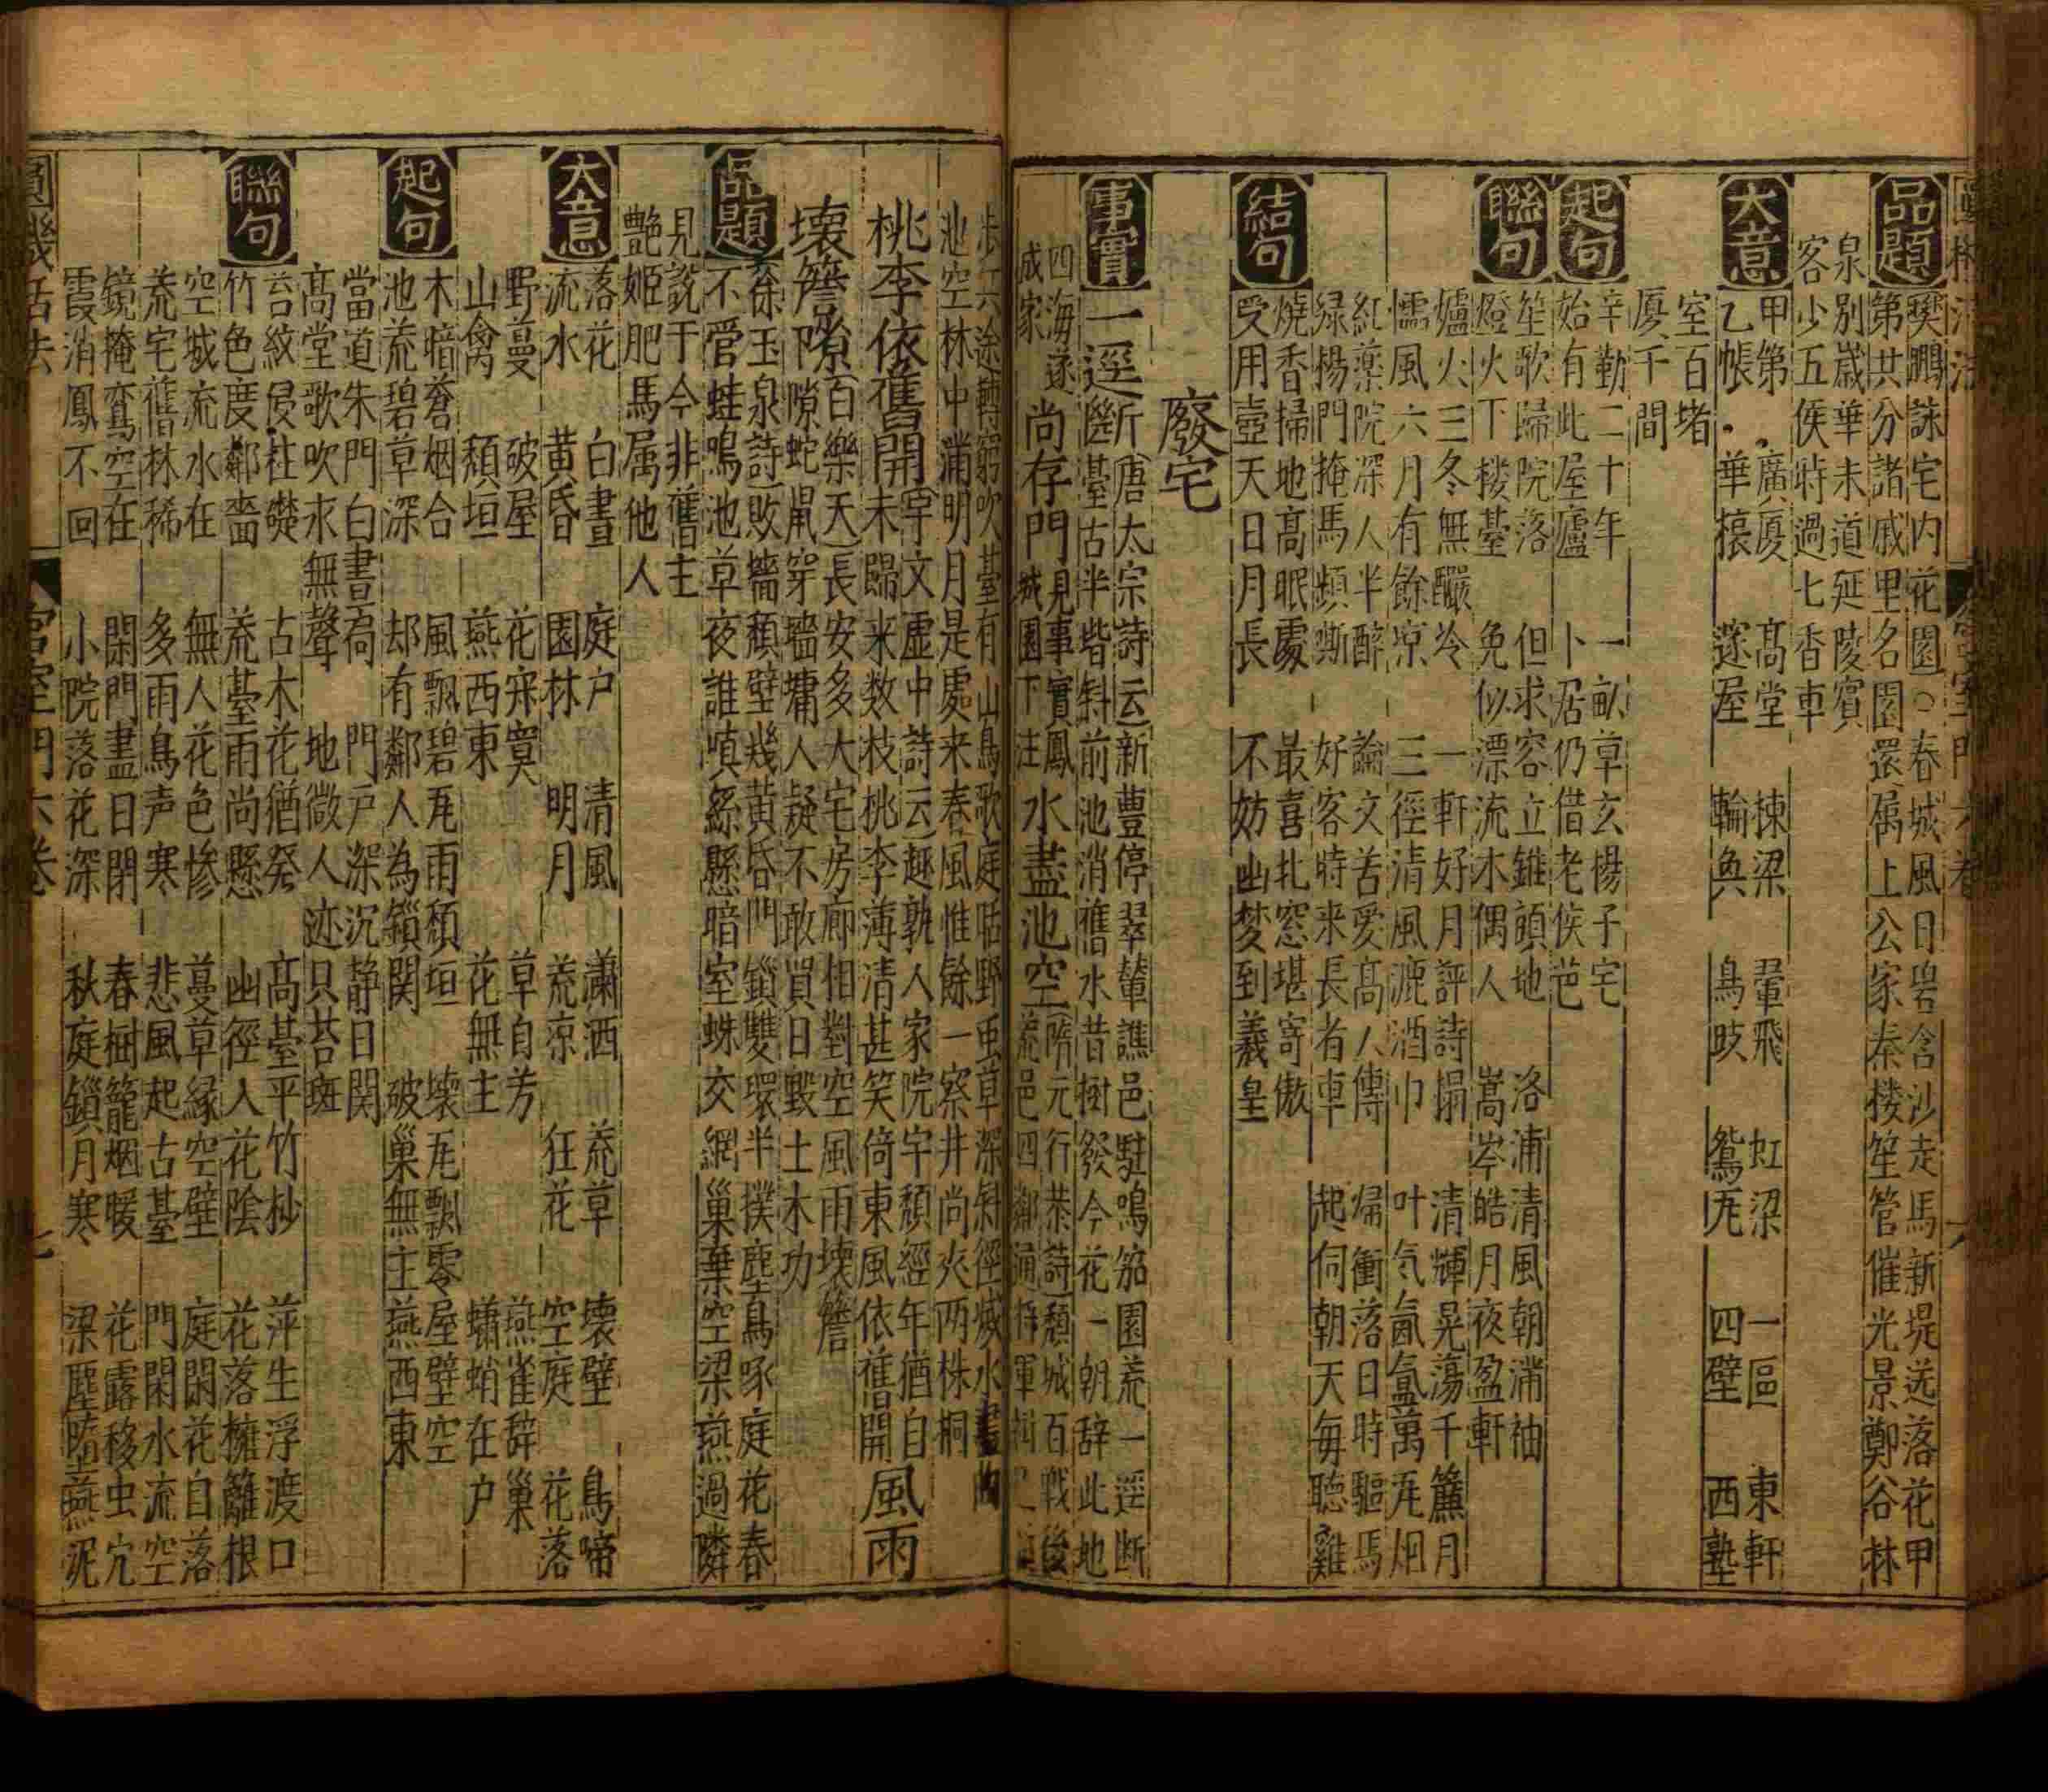 品題 樊鵬詠宅内花園○春城風日碧含沙走馬新堤送落花甲
第共分諸戚里名園還属上公家秦楼笙管催光景鄭谷林
泉別嵗華未道延陵賔
客少五侯時過七香車
大意 甲第 廣厦 髙堂 棟梁 翬飛 虹梁 一區 東軒
乙帳 華榱 邃屋 輪奐 鳥跂 鴛瓦 四壁 西塾
室百堵
厦千間
起句 辛勤二十年 一畝草玄楊子宅
始有此屋廬 卜居仍借老侯芭
聯句 笙歌歸院落 但求容立錐頭地 洛浦清風朝滿袖
燈火下楼臺 免似漂流木偶人 嵩岑皓月夜盈軒
爐火三冬無釅冷 一軒好月評詩榻 清輝晃蕩千簾月
懦風六月有餘凉 三徑清風漉酒巾 叶气氤氳萬瓦烟
紅藥院深人半醉 論文苦愛髙人傳 帰衝落日時驅馬
緑楊門掩馬頻嘶 好客時来長者車 起伺朝天每聴雞
結句 燒香掃地髙眠處 最喜北窓堪寄傲
受用壺天日月長 不妨幽梦到羲皇
廢宅
事實 一逕斷 唐太宗詩云新豊停翠輦譙邑駐鳴笳園荒一逕断
臺古半堦斜前池消舊水昔樹發今花一朝辞此地
四海遂
成家 尚存門 見事實鳳
城園下注 水盡池空 隋元行恭詩頽城百戦後
荒邑四鄰通
歩穴途轉窮吹臺有山鳥歌庭咕野虫草深斜徑滅水盡曲
池空林中滿明月是處来春風惟餘一窠井尚夾两株桐
桃李依舊開 罕文虚中詩云趣孰人家院宇頽經年猶自
未歸来数枝桃李薄清甚笑倚東風依舊開 風雨
壊簷隙 百樂天長安多大宅房廊相對空風雨壊簷
隙蛇鼠穿墻墉人疑不敢買日毀土木功
品題 徐玉泉詩敗牆頽壁幾黄昏門鎖雙環半撲塵鳥啄庭花春
不管蛙鳴池草夜誰嗔絲懸暗室蛛交網巢棄空梁燕過隣
見說于今非舊主
艷姬肥馬属他人
大意 落花 白晝 庭户 清風 瀟洒 荒草 壊壁 鳥啼
流水 黄昏 園林 明月 荒凉 狂花 空庭 花落
野蔓 破屋 花寂寞 草自芳 燕雀辞巢
山禽 頽垣 燕西東 花無主 蠨蛸在户
起句 木暗蒼烟合 風飄碧瓦雨頽垣 壊瓦飄零屋壁空
池荒碧草深 却有鄰人為鎖関 破巢無主燕西東
當道朱門白晝扃 門户深沉静日関
髙堂歌吹永無聲 地微人迹只苔斑
聯句 苔紋侵柱礎 古木花猶發 髙臺平竹杪 萍生浮渡口
竹色度鄰嗇 荒臺雨尚懸 幽徑入花陰 花落擁籬根
空城流水在 無人花色惨 蔓草縁空壁 庭閑花自落
荒宅舊林稀 多雨鳥声寒 悲風起古臺 門閑水流空
鏡掩鸞空在 閑門盡日閉 春樹籠烟暖 花露移虫穴
霞消鳳不回 小院落花深 秋庭鎖月寒 梁塵墮燕泥
圓機活法 宮室門六卷 七